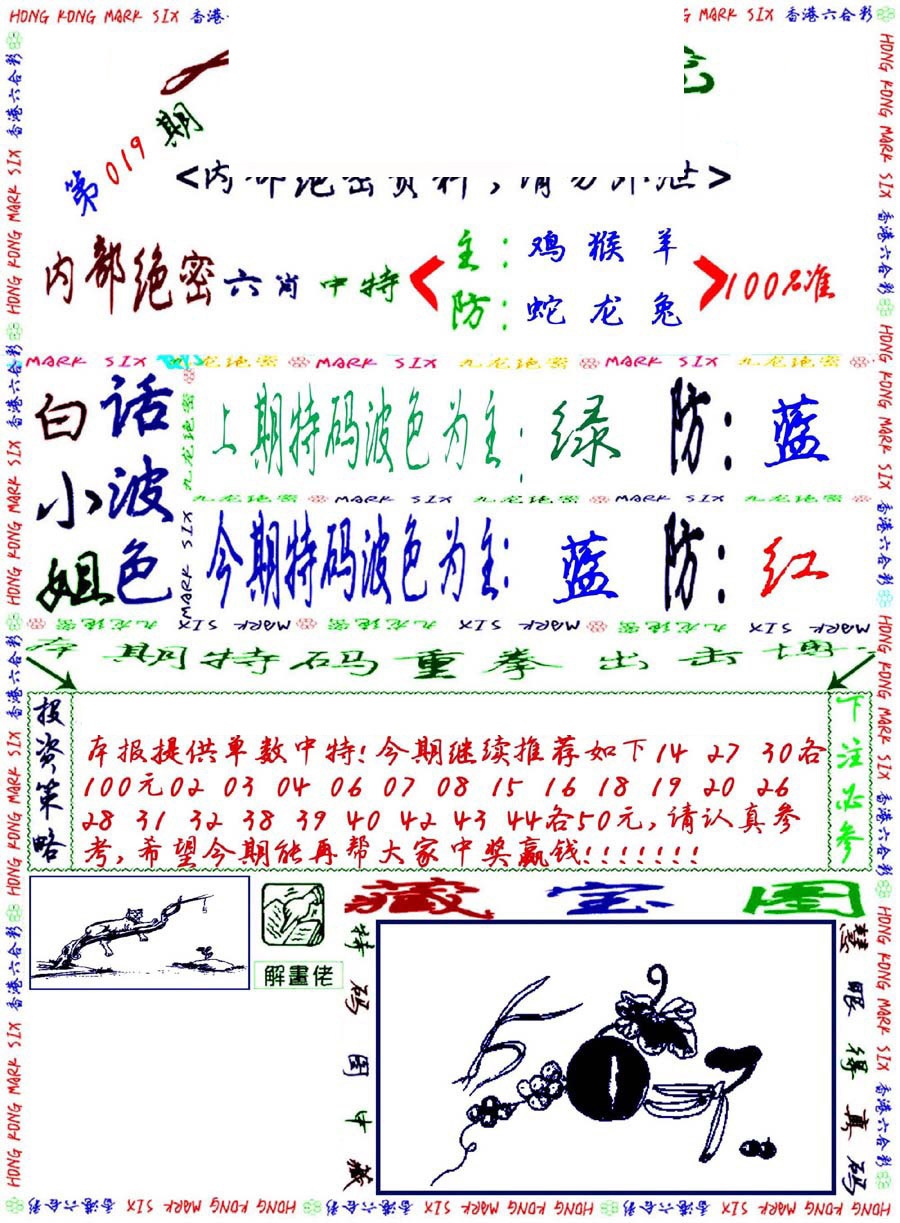 HONG KONG MARK SIX 香港
MARK SIX 香港六合彩
第019期
<内部绝密资料,请勿外泄>
内部绝密六肖中特
主:鸡猴羊
防:蛇龙兔
100%准
MARK SIX 九龙绝密 MARK SIX 九龙绝密 MARK SIX 九龙绝密
白小姐
话波色
上期特码波色为主:绿 防:蓝
九龙绝密 MARK SIX 九龙绝密 MARK SIX 九龙绝密
今期特码波色为主:蓝 防:红
九龙绝密 MARK SIX 九龙绝密 MARK SIX 九龙绝密 MARK SIX
期特码重拳出击
投资策略
本报提供单数中特!今期继续推荐如下14 27 30各
100元02 03 04 06 07 08 15 16 18 19 20 26
28 31 32 38 39 40 42 43 44各50元,请认真参
考,希望今期能再帮大家中奖赢钱!!!!!!!
下注必参
解畫佬
藏宝图
特码图中藏
慧眼得真码
HONG KONG MARK SIX 香港六合彩 HONG KONG MARK SIX 香港六合彩 HONG KONG MARK SIX 香港六合彩